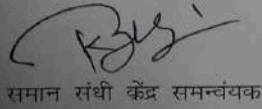 समान संधी केंद्र समन्वंयक